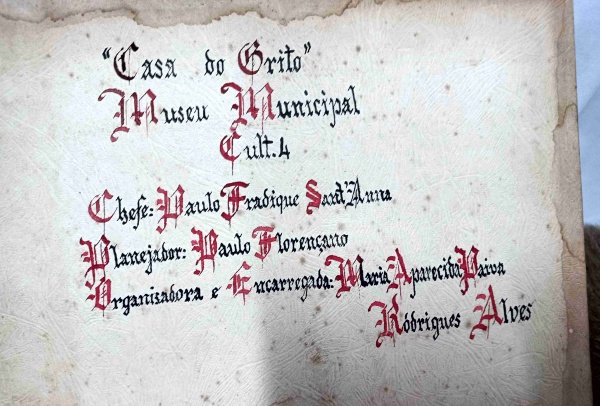 "Casa do Grito"
Museu Municipal
Cult.4
Chefe: Paulo Fradique Sant'Anna
Planejador: Paulo Florençano
Organizadora e Encarregada: Maria Aparecida Paiva
Rodrigues Alves